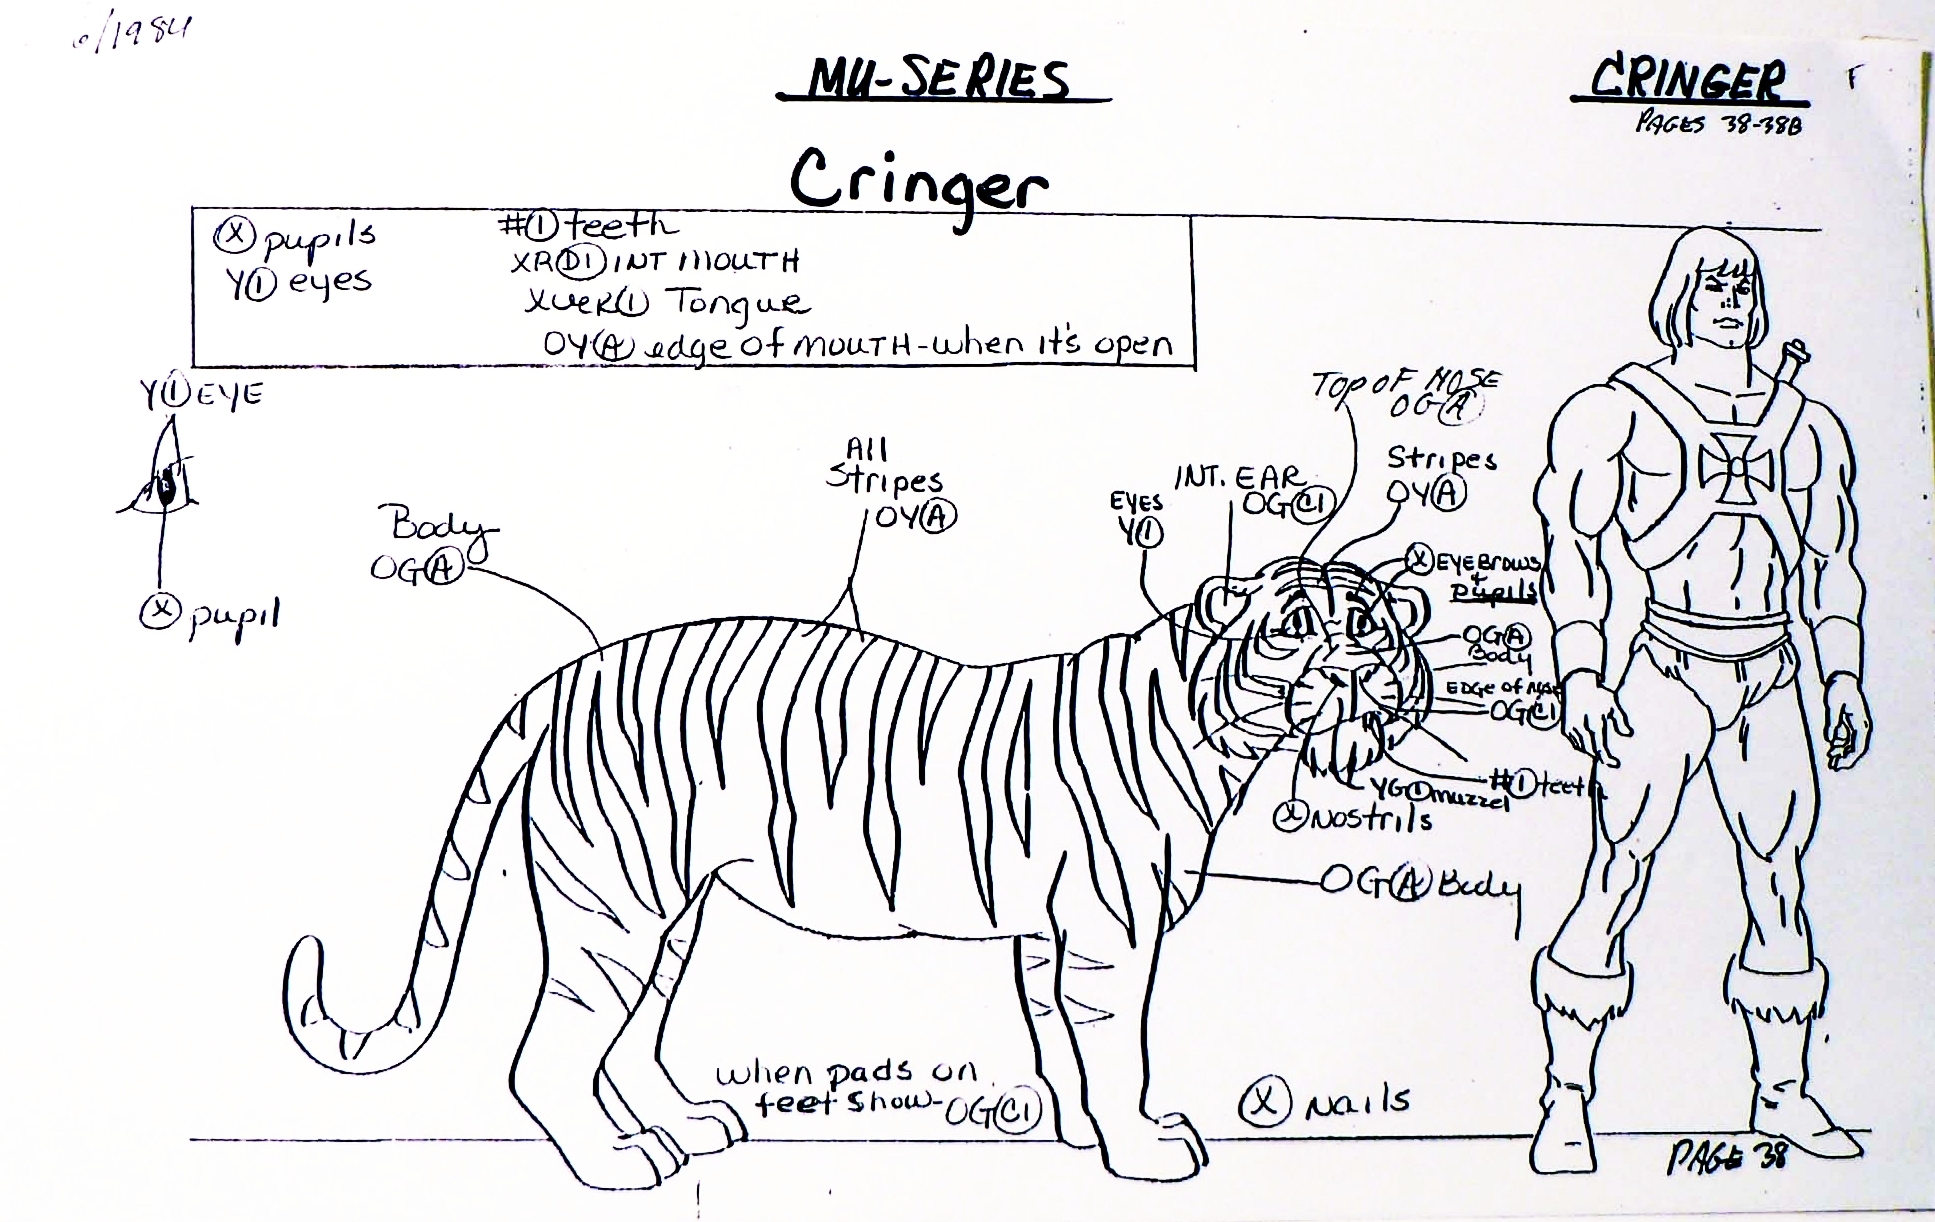 6/1984
MU-SERIES
CRINGER
PAGES 38-38B
Cringer
Ⓧ pupils
Y① eyes
#① teeth
XRⒹ① INT MOUTH
XVER① Tongue
OYⒶ edge of MOUTH-when it's open
Y① EYE
Ⓧ pupil
Body
OGⒶ
All
Stripes
OYⒶ
EYES
Y①
INT. EAR
OG(C1)
TOP OF NOSE
OGⒶ
Stripes
OYⒶ
Ⓧ EYEBROWS
+
Pupils
OGⒶ
Body
EDGE OF NOSE
OG(C1)
#① teeth
YG① muzzel
Ⓧ Nostrils
OGⒶ Body
when pads on
feet show-OG(C1)
Ⓧ Nails
PAGE 38